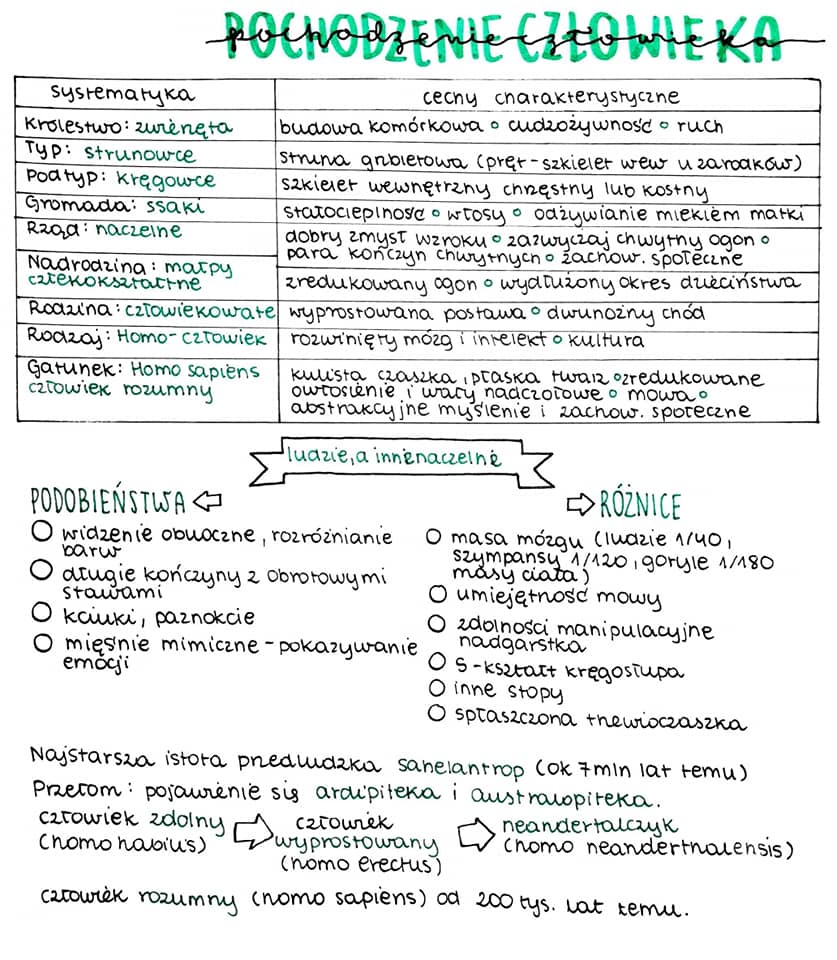 POCHODZENIE CZŁOWIEKA
pochodzenie człowieka
systematyka
cechy charakterystyczne
Królestwo: zwierzęta
budowa komórkowa o cudzożywność o ruch
Typ: strunowce
struna grzbietowa (pręt-szkielet wew u zarodków)
Podtyp: kręgowce
szkielet wewnętrzny chrzęstny lub kostny
Gromada: ssaki
stałocieplność o włosy o odżywianie mlekiem matki
Rząd: naczelne
dobry zmysł wzroku o zazwyczaj chwytny ogon o
para kończyn chwytnych o zachow. społeczne
Nadrodzina: małpy
człekokształtne
zredukowany ogon o wydłużony okres dzieciństwa
Rodzina: człowiekowate
wyprostowana postawa o dwunożny chód
Rodzaj: Homo-człowiek
rozwinięty mózg i intelekt o kultura
Gatunek: Homo sapiens
człowiek rozumny
kulista czaszka, płaska twarz o zredukowane
owłosienie i wały nadczołowe o mowa o
abstrakcyjne myślenie i zachow. społeczne
ludzie, a inne naczelne
PODOBIEŃSTWA
widzenie obuoczne, rozróżnianie
barw
długie kończyny z obrotowymi
stawami
kciuki, paznokcie
mięśnie mimiczne - pokazywanie
emocji
RÓŻNICE
masa mózgu (ludzie 1/40,
szympansy 1/120, goryle 1/180
masy ciała)
umiejętność mowy
zdolności manipulacyjne
nadgarstka
S-kształt kręgosłupa
inne stopy
spłaszczona trzewioczaszka
Najstarsza istota przedludzka sahelantrop (ok 7mln lat temu)
Przełom: pojawienie się ardipiteka i australopiteka.
człowiek zdolny
(homo habilus)
człowiek
wyprostowany
(homo erectus)
neandertalczyk
(homo neanderthalensis)
człowiek rozumny (homo sapiens) od 200 tys. lat temu.